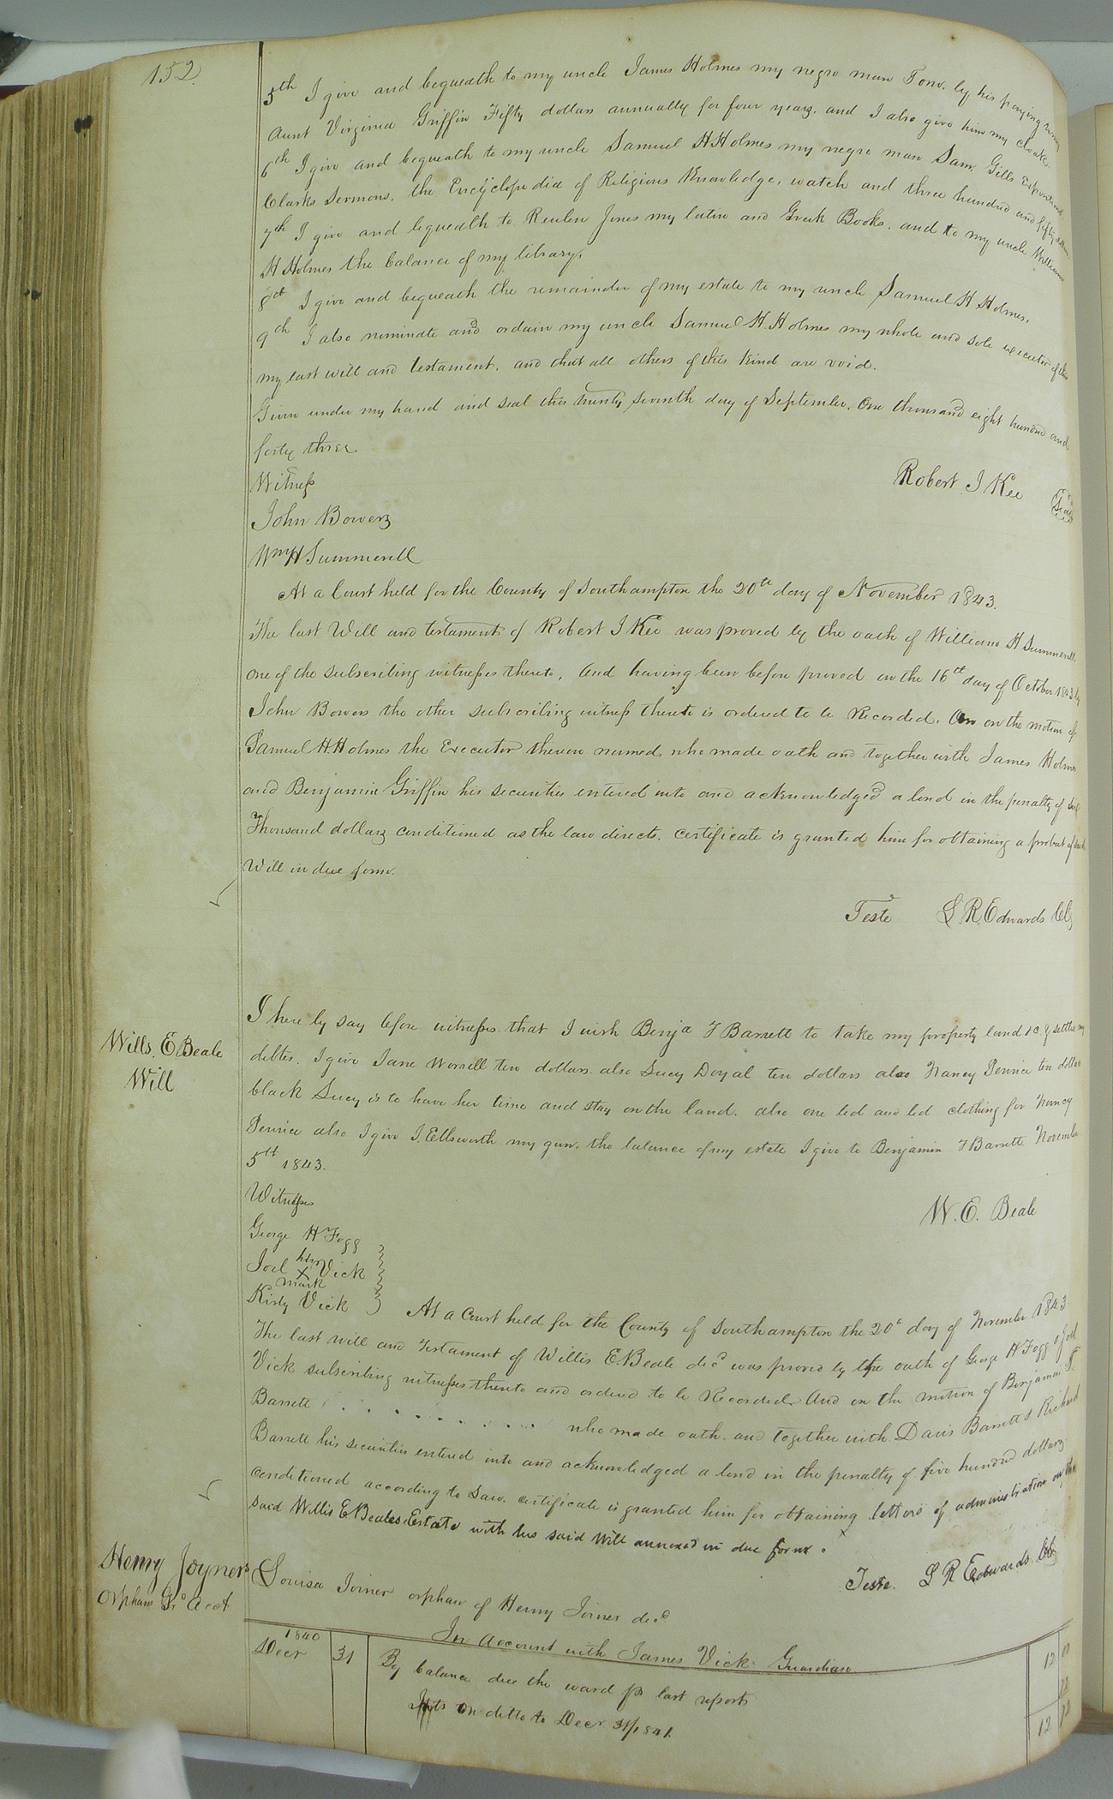 152
5th I give and bequeath to my uncle James Holmes my negro man Tom. by his paying
Aunt Virginia Griffin Fifty dollars annually for four years. and I also give him my cloak.
6th I give and bequeath to my uncle Samuel H Holmes my negro man Sam. Gills
Clarks Sermons. the Encyclopedia of Religious Knowledge, watch and three hundred and fifty
7th I give and bequeath to Reuben Jones my latin and Greek Books. and to my uncle William
H Holmes the balance of my library.
8th I give and bequeath the remainder of my estate to my uncle Samuel H Holmes.
9th I also nominate and ordain my uncle Samuel H. Holmes my whole and sole executor of this
my last will and testament. and that all others of this kind are void.
Given under my hand and seal this twenty seventh day of September. One thousand eight hundred and
forty three
Witness
Robert J Kee Seal
John Bowers
Wm H Summerell
At a Court held for the County of Southampton the 20th day of November 1843.
The last Will and testament of Robert J Kee was proved by the oath of William H Summerell
one of the subscribing witnesses thereto, And having been before proved on the 16th day of October 1843 by
John Bowers the other subscribing witness thereto is ordered to be Recorded. on the motion of
Samuel H. Holmes the Executor therein named who made oath and together with James Holmes
and Benjamin Griffin his securities entered into and acknowledged a bond in the penalty of
Thousand dollars conditioned as the law directs. certificate is granted him for obtaining a probat of
Will in due form.
Teste L R Edwards Clk
Wills. E. Beale
Will
I hereby say before witnesses that I wish Benja F Barrett to take my property land &c & settle my
debts. I give Jane Worrell ten dollars also Lucy Doyal ten dollars also Nancy ten dollars
black Lucy is to have her time and stay on the land. also one bed and bed clothing for Nancy
also I give J. Ellsworth my gun. the balance of my estate I give to Benjamin F Barrett November
5th 1843.
Witness
W. E. Beale
George H Fogg
Joel his X mark Vick
Kirby Vick
At a Court held for the County of Southampton the 20th day of November 1843
The last will and testament of Willis E. Beale decd was proved by the oath of George H Fogg & Joel
Vick subscribing witnesses thereto and ordered to be Recorded. And on the motion of Benjamin F
Barrett . . . . . . . . . . who made oath. and together with Davis Barrett & Richard
Barrett his securities entered into and acknowledged a bond in the penalty of five hundred dollars
conditioned according to Law. certificate is granted him for obtaining letters of administration on the
said Willis E Beales Estate with his said Will annexed in due form.
Teste. L R Edwards Clk
Henry Joyner's
Orphans Gr. acct
Louisa Joiner orphan of Henry Joiner decd
In Account with James Vick Guardian
1840
Decr 31 By balance due the ward pr last report 12
Ints on ditto to Decr 31/1841.
12